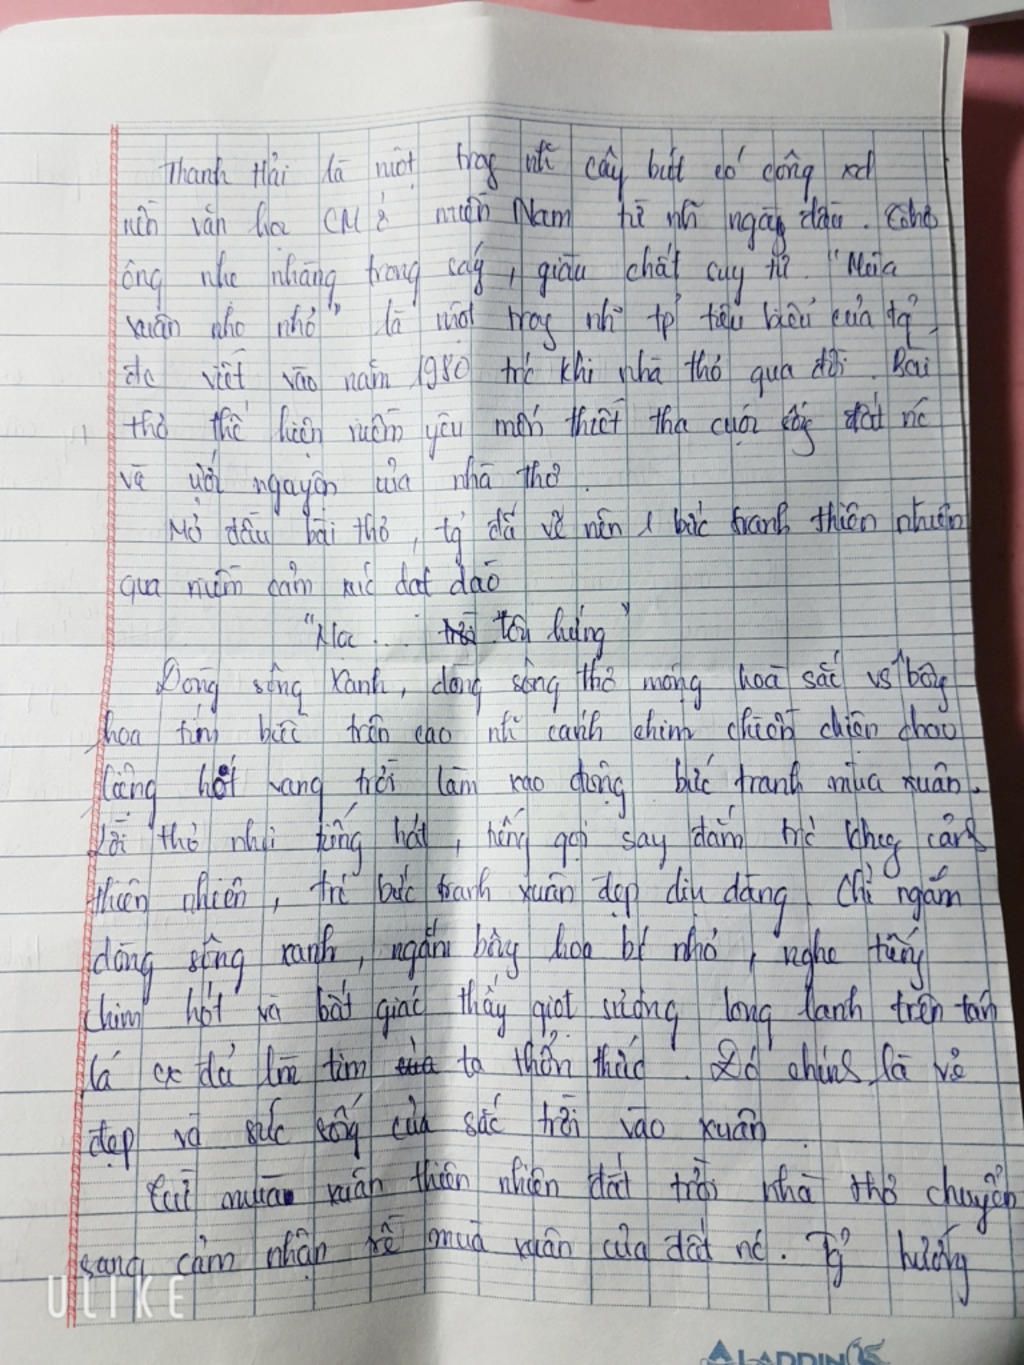 Thanh Hải là một trog nh~ cây bút có công xd
nền văn học CM ở miền Nam từ nh~ ngày đầu.
ông nhẹ nhàng trong , giàu chất suy tư. "Mùa
xuân nho nhỏ" là một trog nh~ tp tiêu biểu của tg
đc viết vào năm 1980 trc khi nhà thơ qua đời. Bài
thơ thể hiện niềm yêu mến thiết tha cuộc đất nc
và ước nguyện của nhà thơ.
Mở đầu bài thơ, tg đã vẽ nên 1 bức tranh thiên nhiên
qua niềm cảm xúc dạt dào
"Mọc... tôi hứng"
Dòng sông xanh, dòng sông thơ mộng hoà sắc vs bông
hoa tím biếc trên cao nh~ cánh chim chiền chiện chao
liệng hót vang trời làm xao động bức tranh mùa xuân.
Lời thơ như tiếng hát, tiếng gọi say đắm trc cảnh
thiên nhiên, trc bức tranh xuân đẹp dịu dàng. Chỉ ngắm
dòng sông xanh, ngắm bông hoa bé nhỏ, nghe tiếng
chim hót và bất giác thấy giọt sương long lanh trên tán
lá cx đủ làm tim ta thổn thức. Đó chính là vẻ
đẹp và sức sống của sắc trời vào xuân.
Từ mùa xuân thiên nhiên đất trời nhà thơ chuyển
sang cảm nhận về mùa xuân của đất nc. Tg hướng
ULIKE
ALADDIN